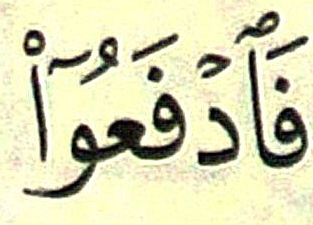 فَٱدۡفَعُوٓاْ